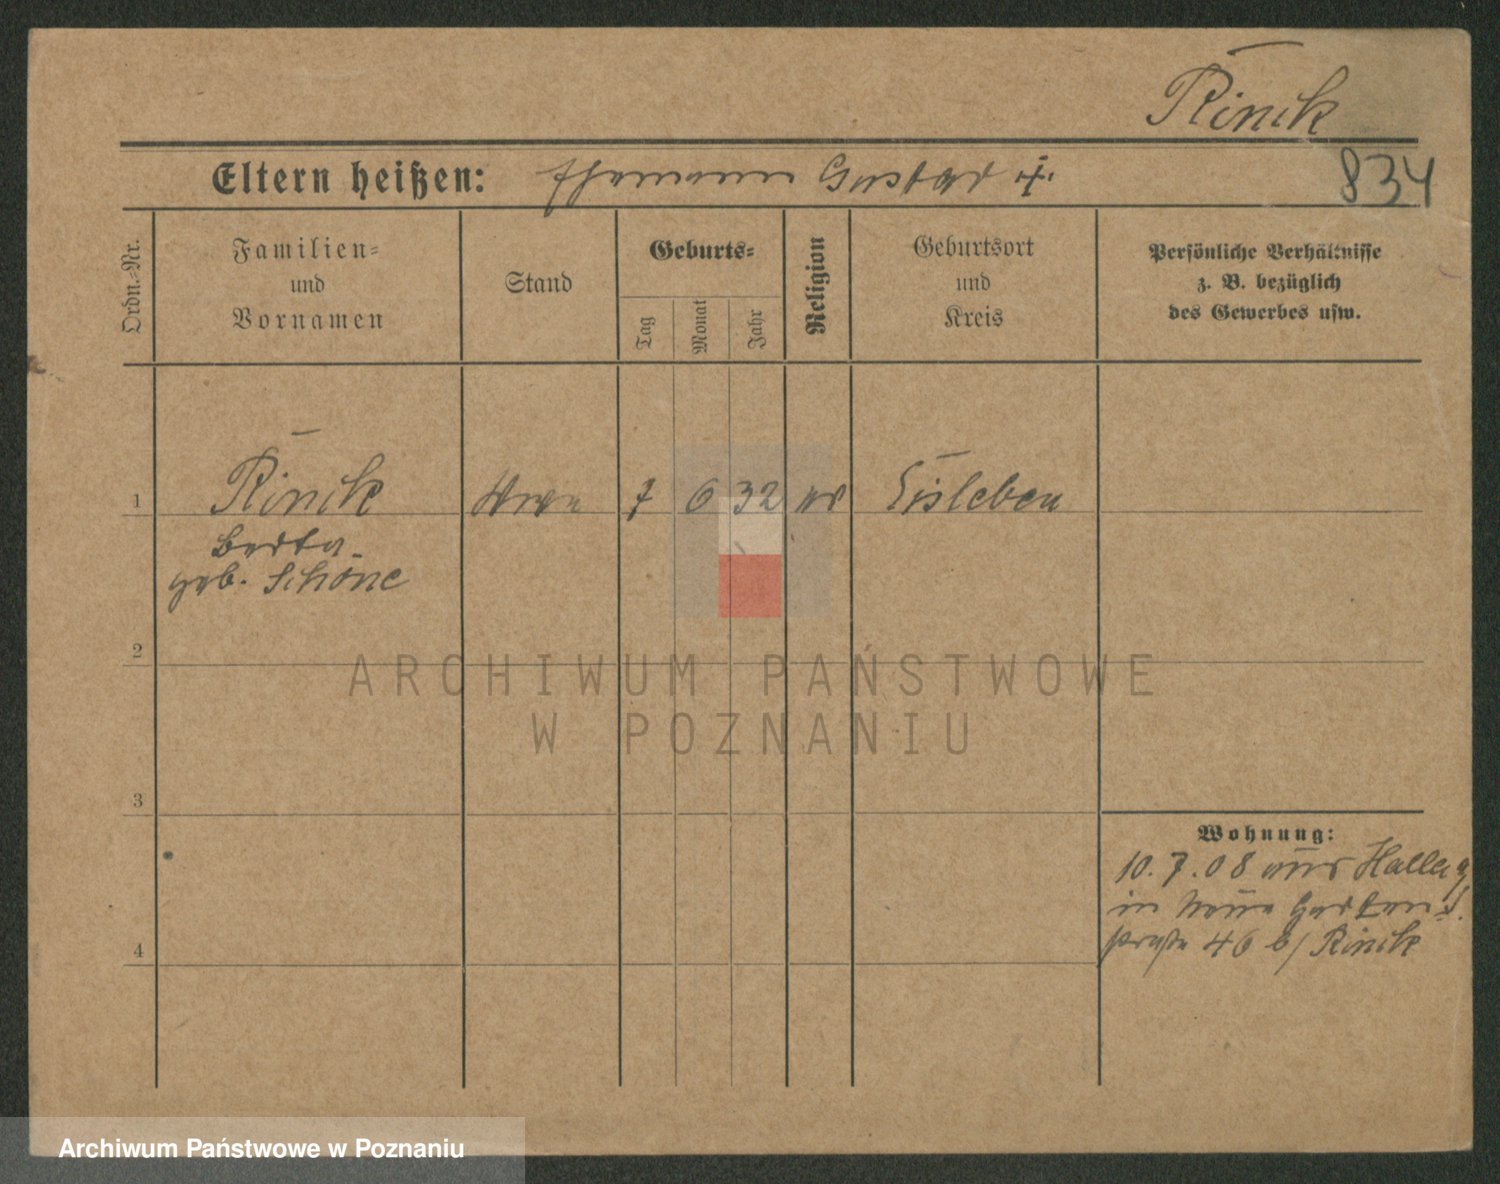 Rinck
834
Eltern heißen: Ehemann Gustav †.
Ordn.-Nr.
Familien-
und
Vornamen
Stand
Geburts-
Tag
Monat
Jahr
Religion
Geburtsort
und
Kreis
Persönliche Verhältnisse
z. B. bezüglich
des Gewerbes usw.
1
Rinck
Berta
geb. Schöne
Wwe
7
6
32
ev
Eisleben
2
3
4
Wohnung:
10. 7. 08 aus Halle a/
in Neue Garten-
straße 46 b/ Rinck
ARCHIWUM PAŃSTWOWE
W POZNANIU
Archiwum Państwowe w Poznaniu